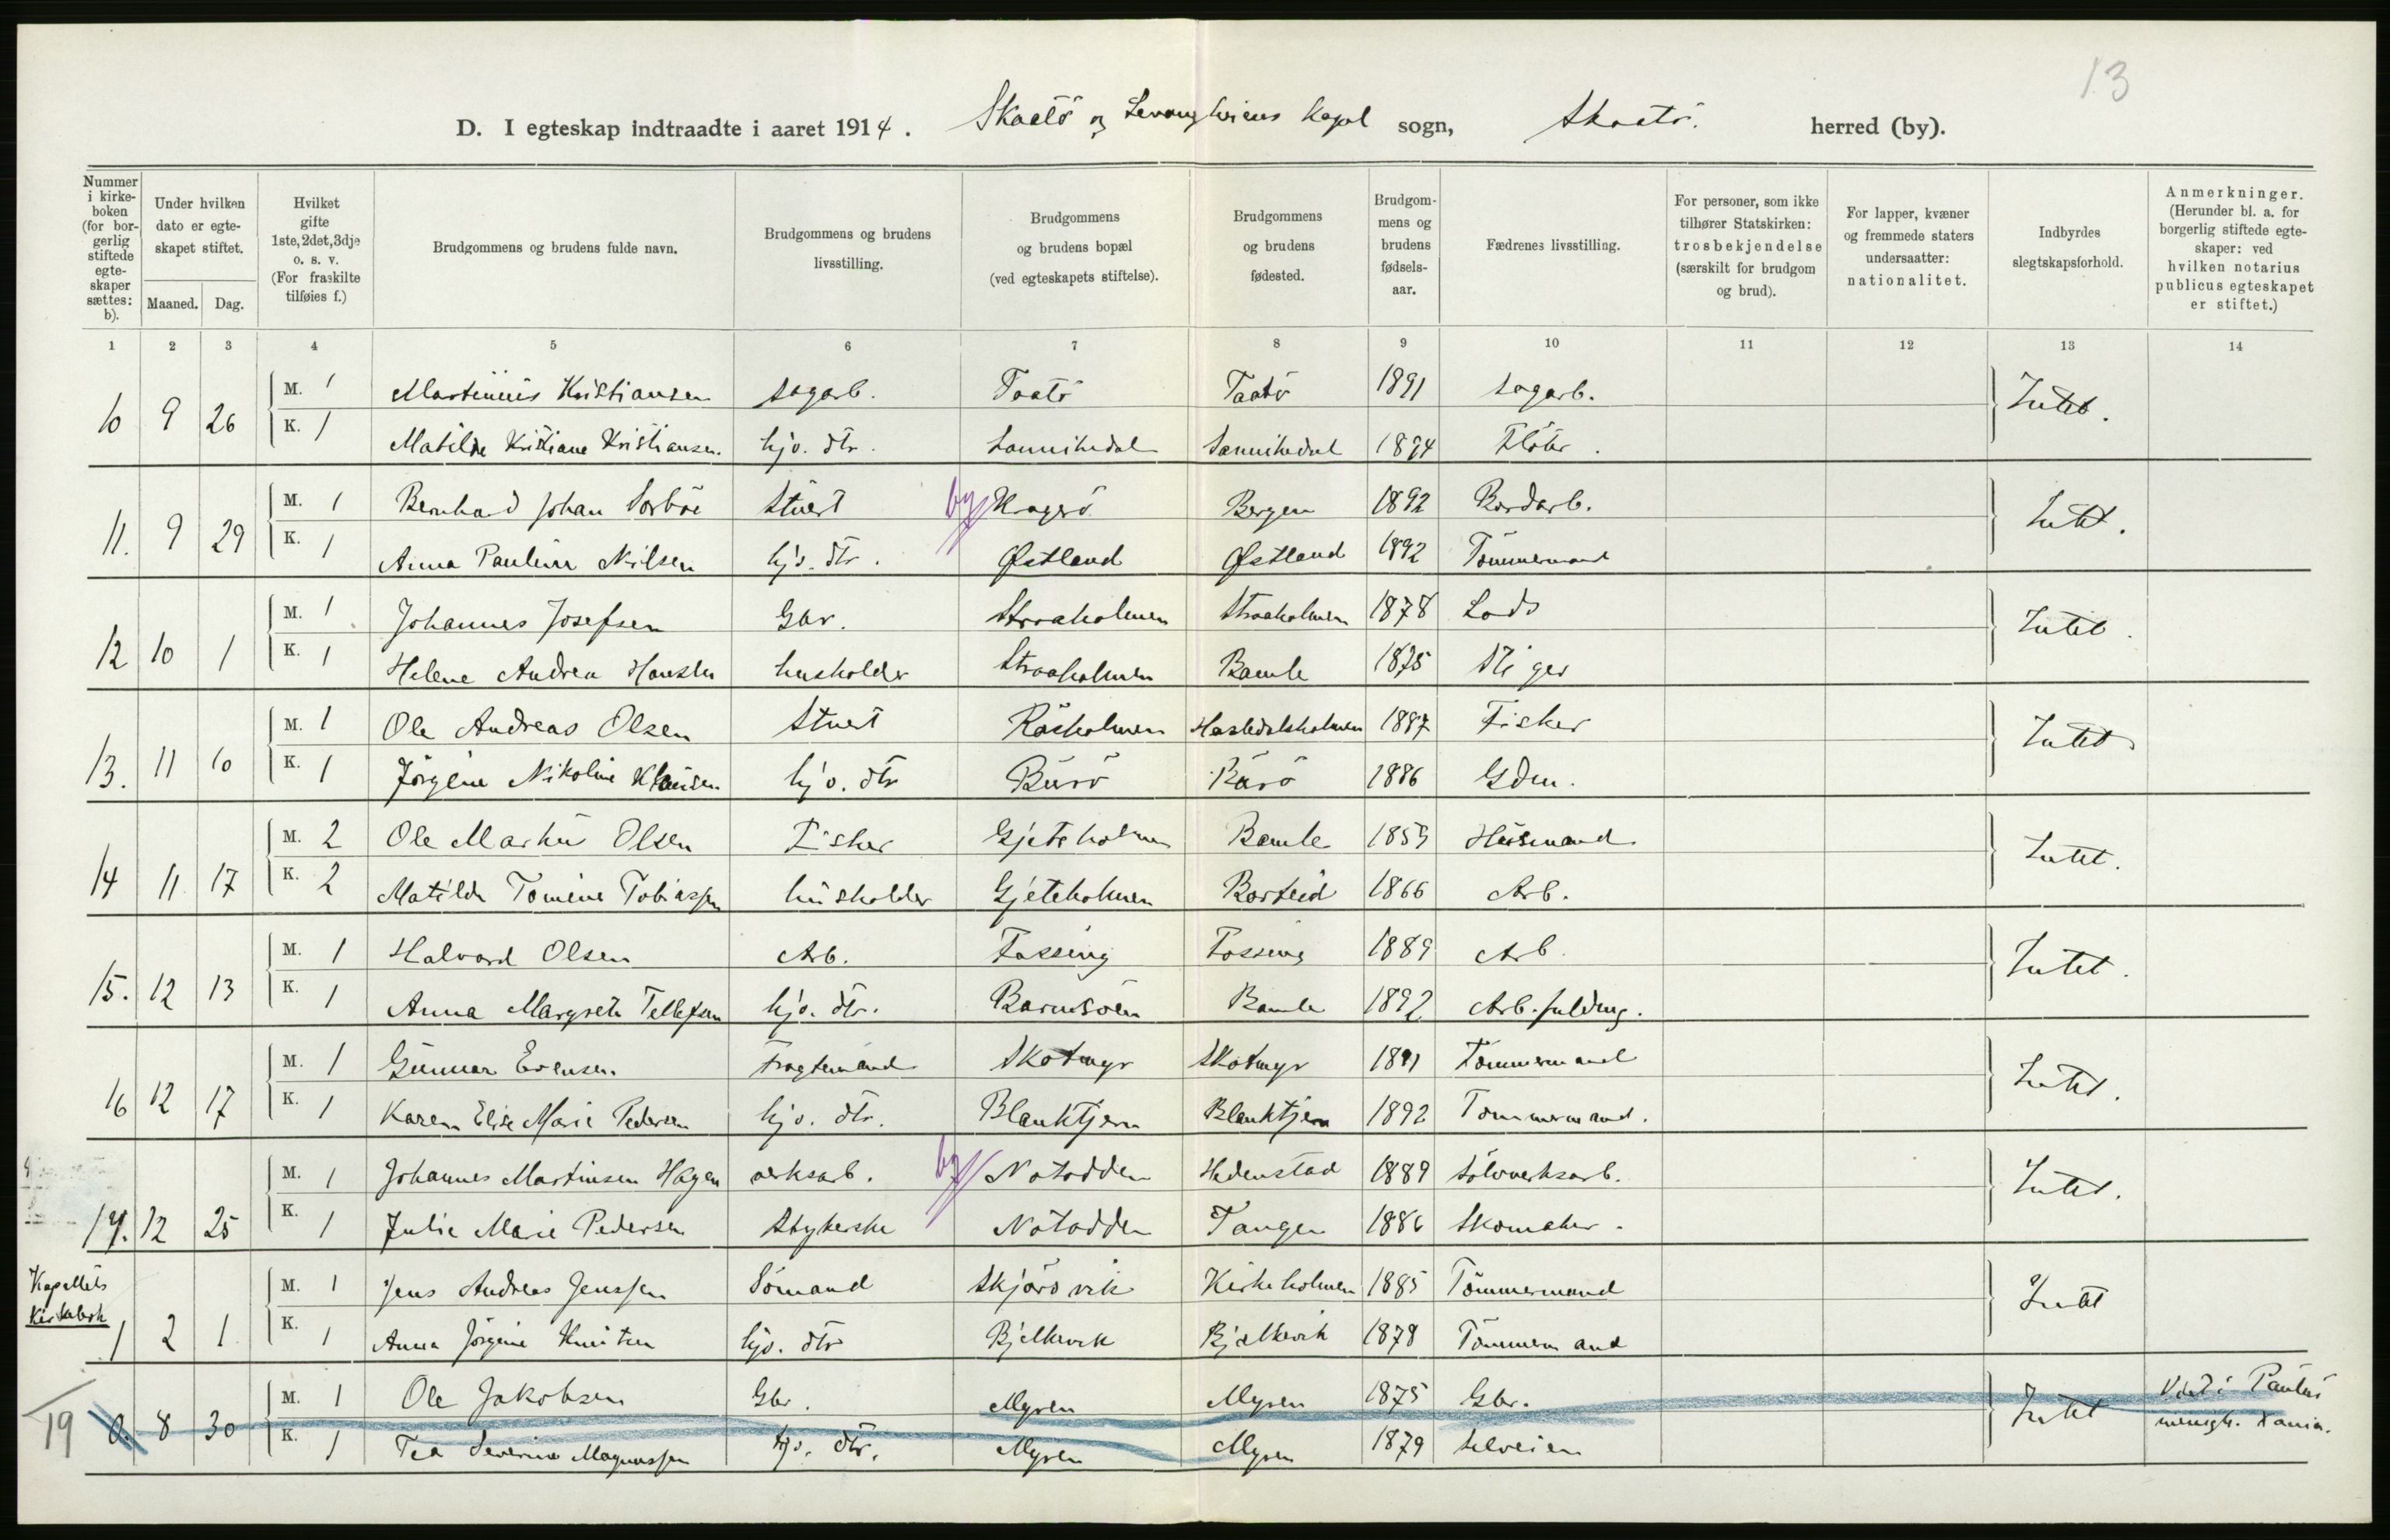 13
D. I egteskap indtraadte i aaret 1914. Skaatö og Levangheiens Kapel sogn, Skaatö. herred (by).
Nummer i kirkeboken (for borgerlig stiftede egteskaper sættes: b).
Under hvilken dato er egteskapet stiftet.
Maaned. Dag.
Hvilket gifte 1ste, 2det, 3dje o. s. v. (For fraskilte tilføies f.)
Brudgommens og brudens fulde navn.
Brudgommens og brudens livsstilling.
Brudgommens og brudens bopæl (ved egteskapets stiftelse).
Brudgommens og brudens fødested.
Brudgommens og brudens fødselsaar.
Fædrenes livsstilling.
For personer, som ikke tilhører Statskirken: trosbekjendelse (særskilt for brudgom og brud).
For lapper, kvæner og fremmede staters undersaatter: nationalitet.
Indbyrdes slegtskapsforhold.
Anmerkninger. (Herunder bl. a. for borgerlig stiftede egteskaper: ved hvilken notarius publicus egteskapet er stiftet.)
1 2 3 4 5 6 7 8 9 10 11 12 13 14
10 9 26 M. 1 Martinius Kristiansen sagarb. Taatö Taatö 1891 sagarb. Intet.
K. 1 Matilde Kristiane Kristiansen. hjo. dtr. Sannikedal Sannikedal 1894 Fløter.
11. 9 29 M. 1 Bernhard Johan Sorböe Stuert by Kragerö Bergen 1892 Bordarb. Intet.
K. 1 Anna Pauline Nilsen hjo. dtr. Østland Østland 1892 Tömmermand
12 10 1 M. 1 Johannes Josefsen Gbr. Straaholmen Straaholmen 1878 Lods Intet.
K. 1 Helene Andrea Hansen husholder Straaholmen Bamle 1875 Stiger
13. 11 10 M. 1 Ole Andreas Olsen Stuert Råsholmen Hasledalsholmen 1887 Fisker Intet
K. 1 Jörgine Nikoline Klausen hjo. dtr Burö Burö 1886 Gdm.
14 11 17 M. 2 Ole Martin Olsen Fisker Gjeteholmen Bamle 1859 Husmand Intet.
K. 2 Matilde Tomine Tobiassen husholder Gjeteholmen Borteid 1866 Arb.
15. 12 13 M. 1 Halvard Olsen Arb. Fossing Fossing 1889 Arb. Intet.
K. 1 Anna Margrete Tellefsen hjo. dtr. Barmsöen Bamle 1892 Arb.
16 12 17 M. 1 Gunnar Evensen Fragtemand Skotmyr Skotmyr 1891 Tömmermand Intet.
K. 1 Karen Elise Marie Pedersen hjo. dtr. Blanktjern Blanktjern 1892 Tömmermand.
17. 12 25 M. 1 Johannes Martinsen Hagen verksarb. by Notodden Hedenstad 1889 sölvverksarb. Intet.
K. 1 Julie Marie Pedersen Strykerske Notodden Tangen 1886 Skomaker.
Kapellets Kirkebok
1 2 1 M. 1 Jens Andreas Jenssen Sömand Skjörsvik Kirkeholmen 1885 Tömmermand Intet
K. 1 Anna Jörgine Knutsen hjo. dtr Bjelkevik Bjelkevik 1878 Tömmermand
19 0. 8 30 M. 1 Ole Jakobsen Gbr. Myren Myren 1875 Gbr. Intet Viet i Paulus
K. 1 Tea Severine Magnussen hjo. dtr. Myren Myren 1879 Selveier menigh. Kania.